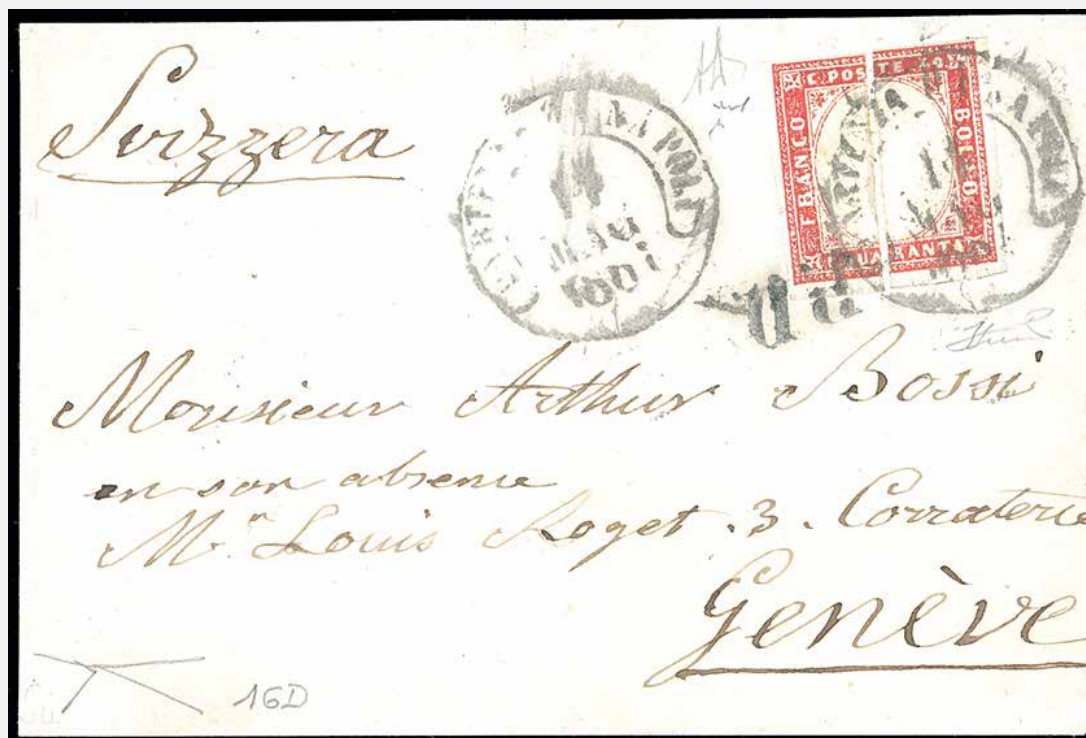 Svizzera
NAPOLI
C. POSTE 40
FRANCO
BOLLO
QUARANTA
P.D.
Monsieur Arthur Bossi
en son absence
Mr. Louis Roget . 3 . Corraterie
Genève
16D